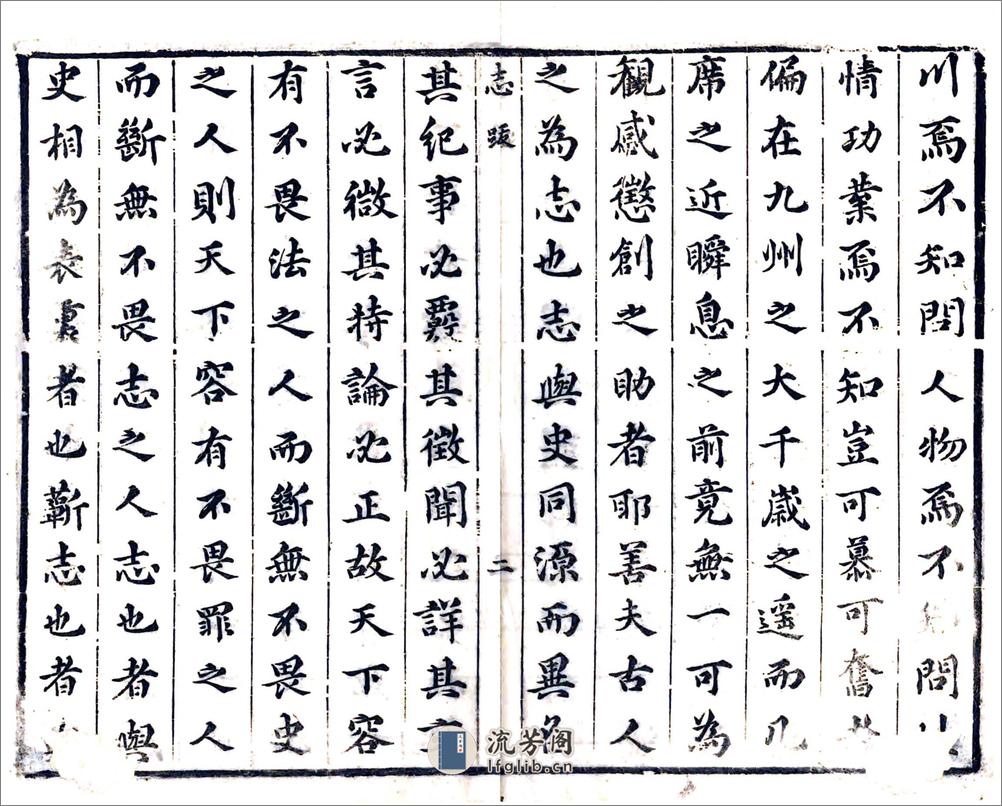 川焉不知問人物焉不知問
情功業焉不知豈可慕可奮
偏在九州之大千歲之遥而几
席之近瞬息之前竟無一可為
觀感懲創之助者耶善夫古人
之為志也志與史同源而異名
志跋
二
其紀事必覈其徵聞必詳其
言必徵其持論必正故天下容
有不畏法之人而斷無不畏史
之人則天下容有不畏罪之人
而斷無不畏志之人志也者與
史相為表裏者也蘄志也者
流芳阁
lfglib.cn